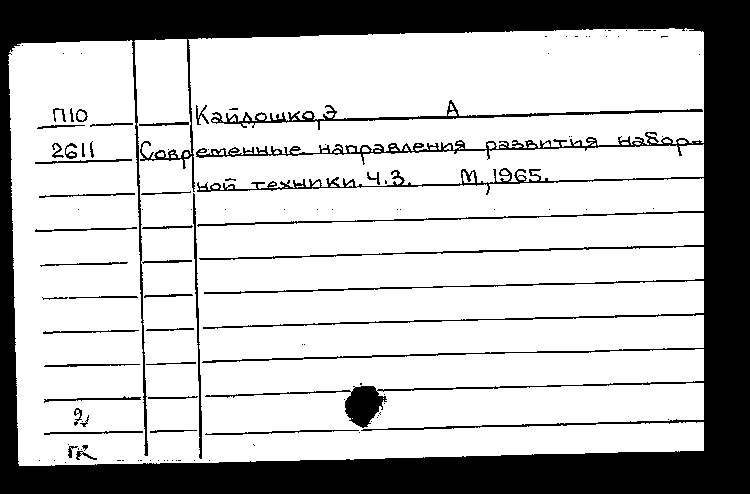 П10 Кайдошко, Э А
2611 Современные направления развития набор-
ной техники. Ч.3. М., 1965.
2